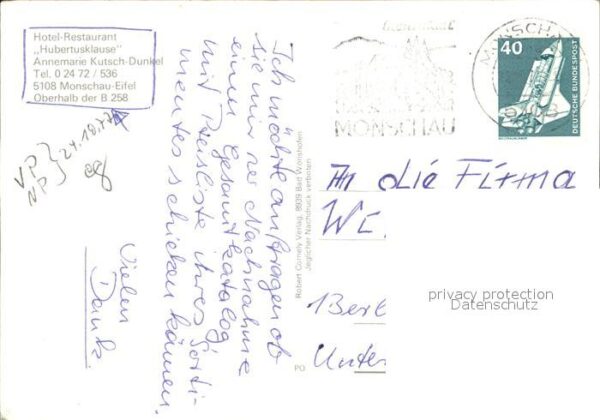 Hotel-Restaurant
„Hubertusklause"
Annemarie Kutsch-Dunkel
Tel. 0 24 72 / 536
5108 Monschau-Eifel
Oberhalb der B 258
VP
NP
24.10.77
Ich möchte anfragen ob
sie mir per Nachnahme
einen Gesamtkatalog
mit Preisliste ihres Sorti-
mentes schicken können.
Vielen
Dank.
Robert Comely Verlag, 8939 Bad Wörishofen
Jeglicher Nachdruck verboten
PO
MONSCHAU
MONSCHAU
40
DEUTSCHE BUNDESPOST
An die Firma
WE
1 Berl
Unter
privacy protection
Datenschutz